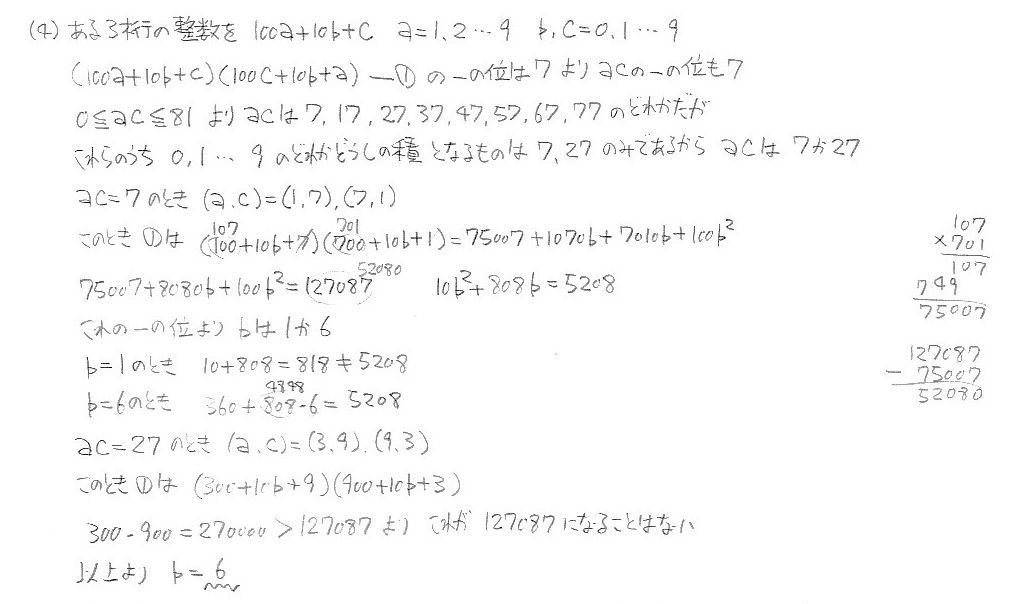 (4) ある3桁の整数を 100a+10b+c a=1,2…9 b,c=0,1…9
(100a+10b+c)(100c+10b+a) ―① の一の位は7より acの一の位も7
0≦ac≦81 より acは 7, 17, 27, 37, 47, 57, 67, 77 のどれかだが
これらのうち 0,1… 9 のどれかどうしの積となるものは 7, 27 のみであるから acは 7か27
ac=7のとき (a,c)=(1,7),(7,1)
107 701
このとき ①は (100+10b+7)(700+10b+1)=75007+1070b+7010b+100b²
52080
75007+8080b+100b²=127087 10b²+808b=5208
これの一の位より bは1か6
b=1のとき 10+808=818≠5208
4848
b=6のとき 360+808·6=5208
ac=27のとき (a,c)=(3,9),(9,3)
このとき①は (300+10b+9)(900+10b+3)
300·900=270000>127087より これが 127087になることはない
以上より b=6
107
×701
107
749
75007
127087
- 75007
52080